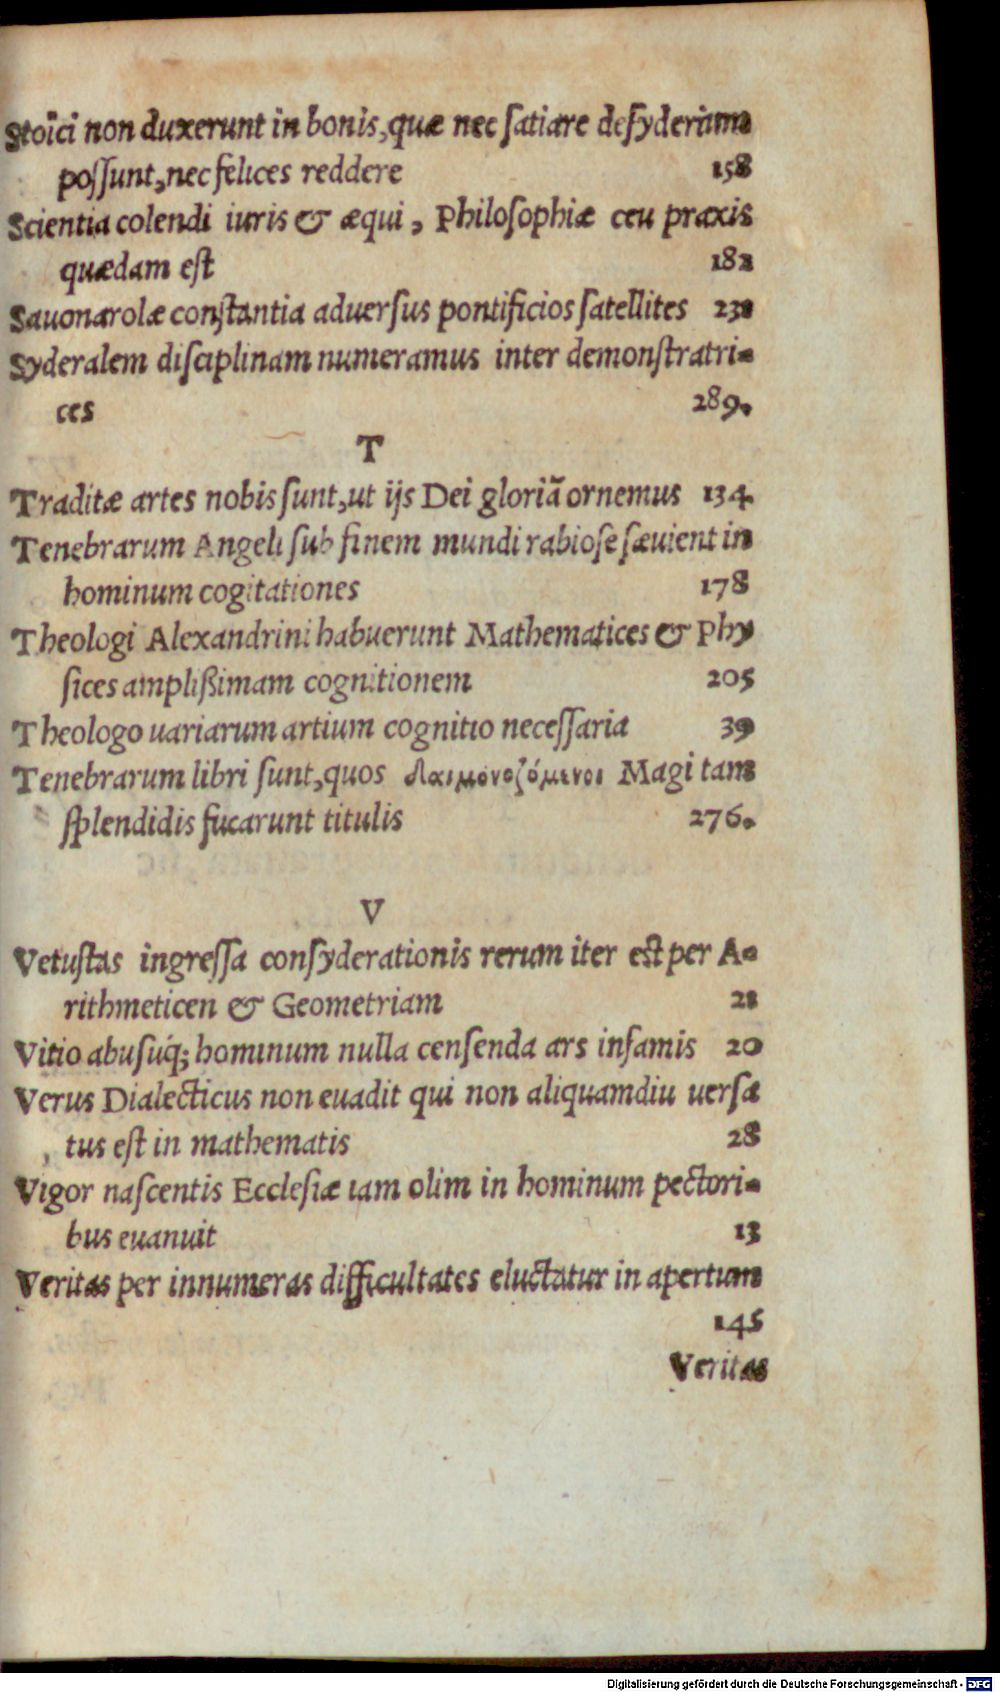 Stoici non duxerunt in bonis, quæ nec ſatiare deſyderium
poſſunt, nec felices reddere 158
Scientia colendi iuris & æqui, Philoſophiæ ceu praxis
quædam eſt 182
Sauonarolæ conſtantia aduerſus pontificios ſatellites 231
Syderalem diſciplinam numeramus inter demonſtratri-
ces 289.
T
Traditæ artes nobis ſunt, ut ijs Dei gloriã ornemus 134.
Tenebrarum Angeli ſub finem mundi rabioſe ſæuient in
hominum cogitationes 178
Theologi Alexandrini habuerunt Mathematices & Phy
ſices ampliſſimam cognitionem 205
Theologo uariarum artium cognitio neceſſaria 39
Tenebrarum libri ſunt, quos δαιμονοζόμενοι Magi tam
ſplendidis fucarunt titulis 276.
V
Vetuſtas ingreſſa conſyderationis rerum iter eſt per A-
rithmeticen & Geometriam 21
Vitio abuſuq́; hominum nulla cenſenda ars infamis 20
Verus Dialecticus non euadit qui non aliquamdiu uerſa
tus eſt in mathematis 28
Vigor naſcentis Eccleſiæ iam olim in hominum pectori-
bus euanuit 13
Veritas per innumeras difficultates eluctatur in apertum
145
Veritas
Digitalisierung gefördert durch die Deutsche Forschungsgemeinschaft - DFG